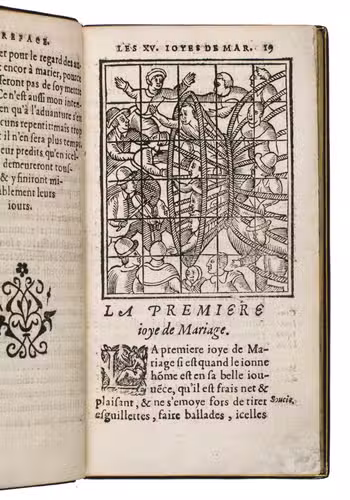 REFACE.
et pour le regard des au
encor à marier, pource
eront pas de soy mettre
Ce n'est aussi mon inten
en qu'à l'aduanture s'en
cuns repentir: mais trop
il n'en sera plus temps.
eur predits qu'en icel-
demeureront tous-
& y finiront mi-
ablement leurs
iours.
LES XV. IOYES DE MAR. 19
LA PREMIERE
ioye de Mariage.
LA premiere ioye de Ma-
riage si est quand le ionne
hõme est en sa belle iou-
uẽce, qu'il est frais net &
plaisant, & ne s'emoye fors de tirer
Soucie.
esguillettes, faire ballades, icelles